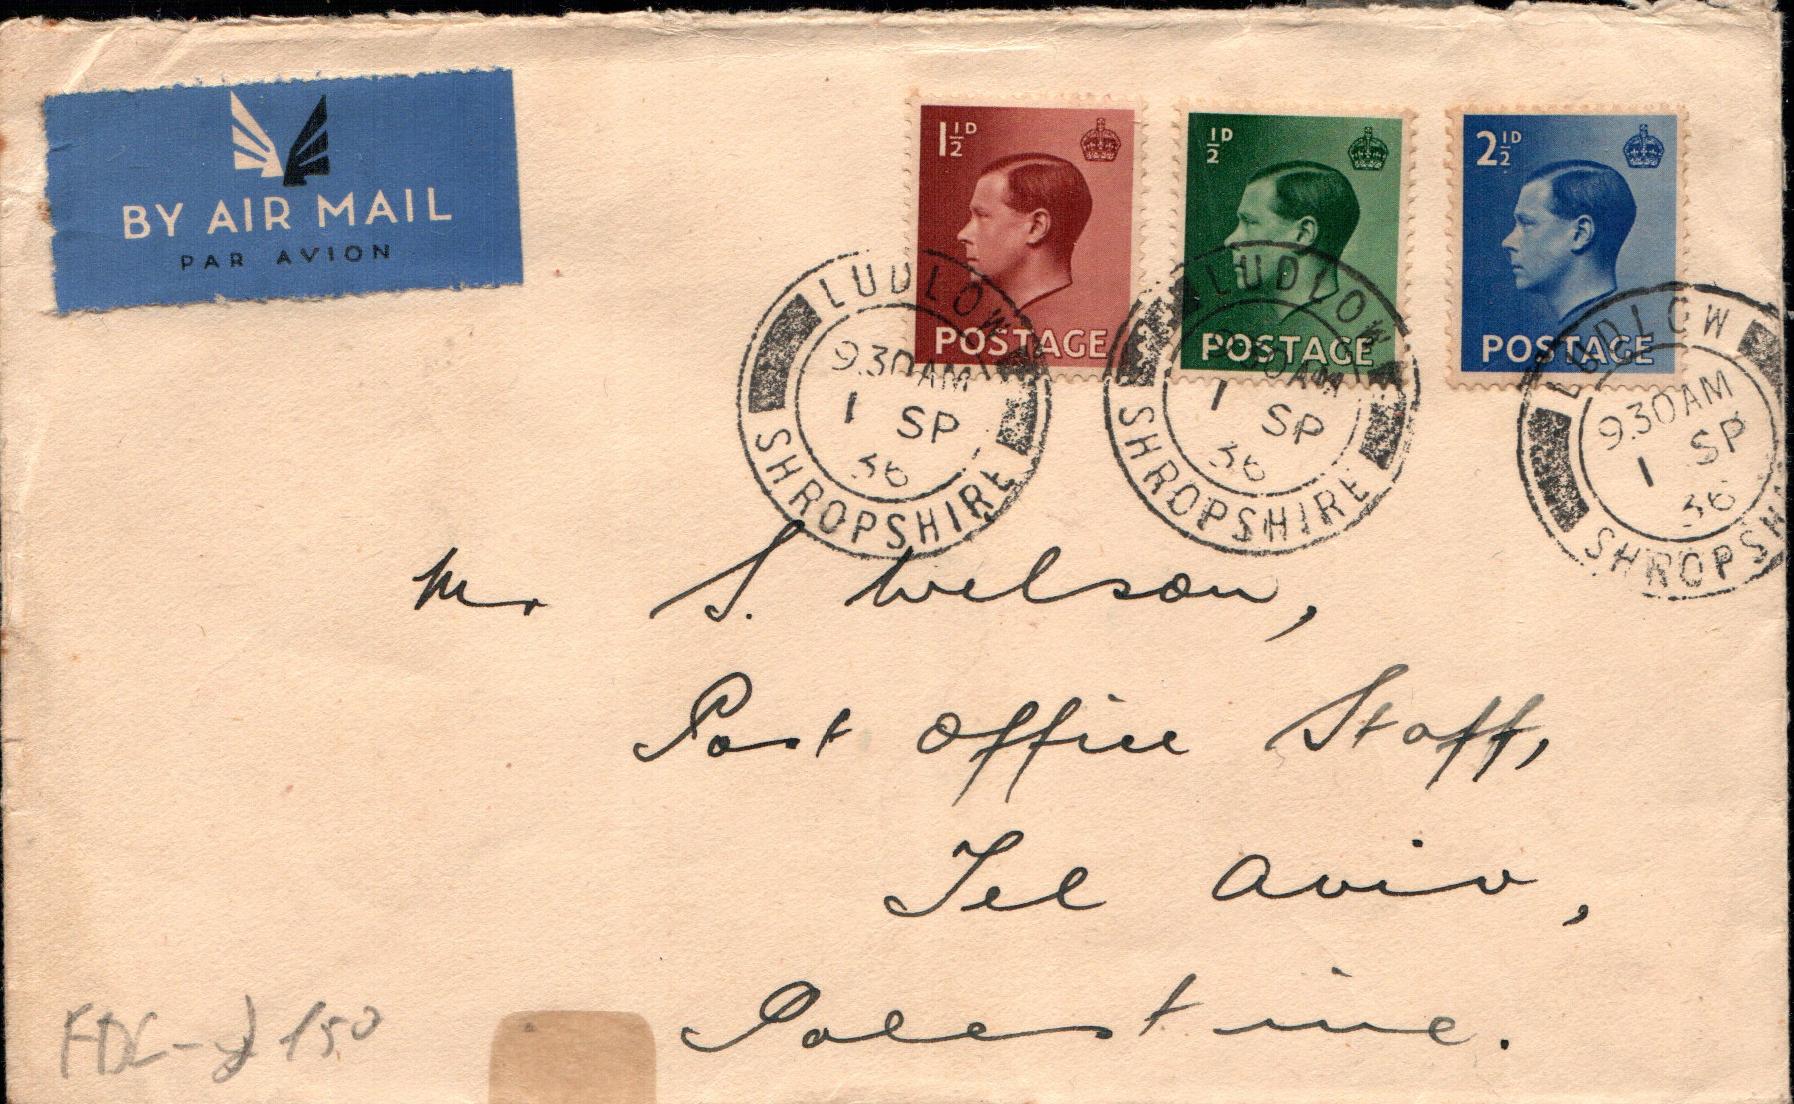 BY AIR MAIL
PAR AVION
1½D
POSTAGE
½D
POSTAGE
2½D
POSTAGE
LUDLOW
9.30AM
1 SP
36
SHROPSHIRE
LUDLOW
9.30AM
1 SP
36
SHROPSHIRE
LUDLOW
9.30AM
1 SP
36
SHROPSH
Mr S. Wilson,
Post Office Staff,
Tel Aviv,
Palestine.
FDC - 150